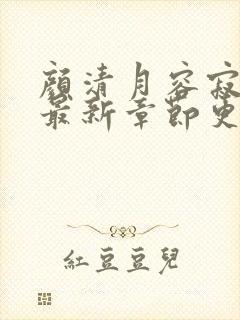 顏清月容寂
最新章節更
紅豆豆兒